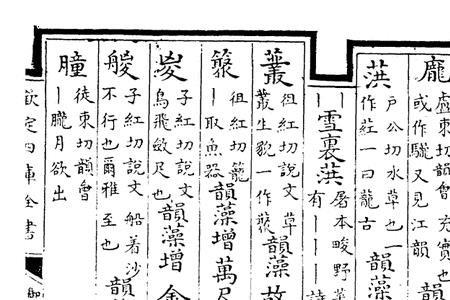 龐盧東切韻會充實也
或作又見江韻韻
葓戶公切水草也一
作葒一曰龍古韻藻
丨丨雪裏葓屠本畯野菜
有丨丨丨詩
䕺徂紅切說文草
叢生貌一作藂韻藻故
徂紅切籠
丨取魚器韻藻增萬尺
㚇子紅切說文
鳥飛斂足也韻藻增金
艐子紅切說文船着沙
不行也爾雅至也韻
朣徒東切韻會
丨朧月欲出
欽定四庫全書
御